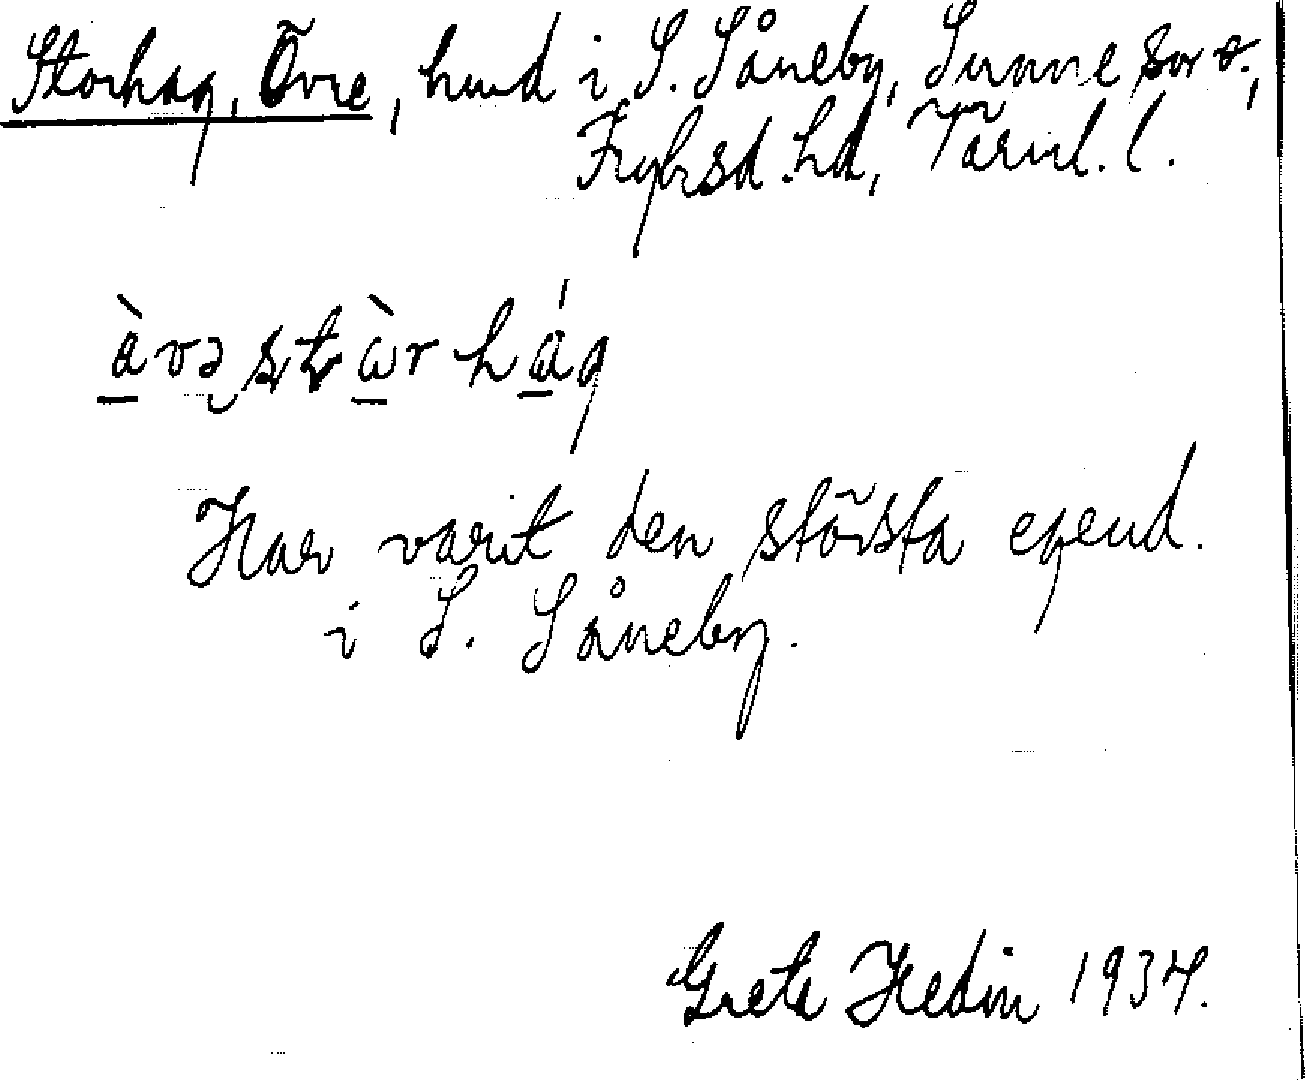 Storhag, Övre, hmd i S. Såneby, Sunne sn o.,
Fryksd. hd, Värml. l.
àvəstὼrhág
Har varit den största egend.
i S. Såneby.
Greta Hedin 1934.